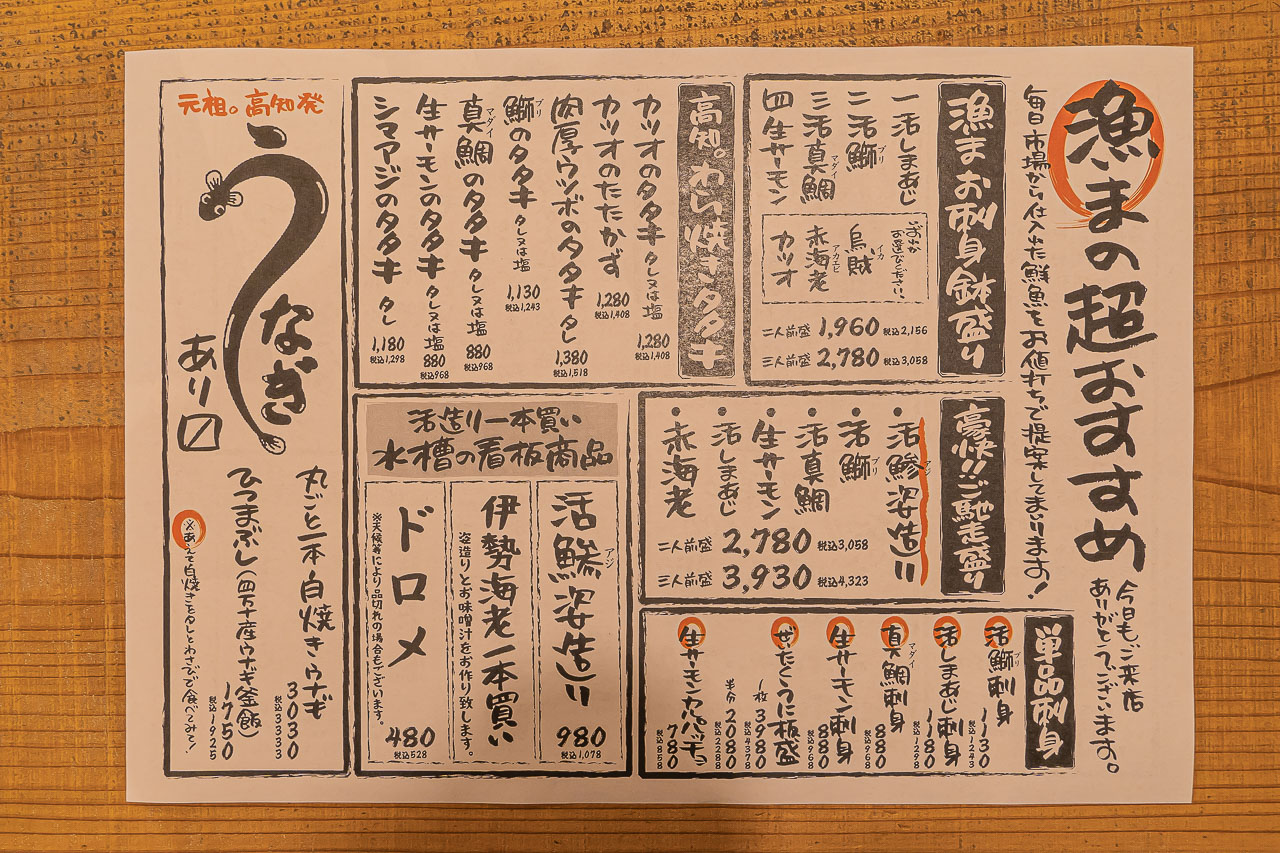 漁まの超おすすめ
今日もご来店
ありがとうございます。
毎日市場から仕入れた鮮魚をお値打ちで提案してまいります!
漁まお刺身鉢盛り
一 活しまあじ
二 活鰤 ブリ
三 活真鯛 マダイ
四 生サーモン
いずれか
お選びください。
烏賊 イカ
赤海老 アカエビ
カツオ
二人前盛 1,960 税込2,156
三人前盛 2,780 税込3,058
高知。わら焼きタタキ
カツオのタタキ タレ又は塩 1,280 税込1,408
カツオのたたかず 1,280 税込1,408
肉厚ウツボのタタキ タレ 1,380 税込1,518
鰤のタタキ ブリ タレ又は塩 1,130 税込1,243
真鯛のタタキ マダイ タレ又は塩 880 税込968
生サーモンのタタキ タレ又は塩 880 税込968
シマアジのタタキ タレ 1,180 税込1,298
豪快!!ご馳走盛り
・活鯵姿造り アジ
・活鰤 ブリ
・活真鯛 マダイ
・生サーモン
・活しまあじ
・赤海老
二人前盛 2,780 税込3,058
三人前盛 3,930 税込4,323
単品刺身
活鰤刺 ブリ 1130 税込1243
活しまあじ刺身 1180 税込1298
真鯛刺身 マダイ 880 税込968
生サーモン刺身 880 税込968
ぜいたくうに板盛
1枚 3980 税込4378
半分 2080 税込2288
生サーモンカルパッチョ 780 税込858
活造り一本買い
水槽の看板商品
活鯵姿造り アジ 980 税込1,078
伊勢海老一本買い
姿造りとお味噌汁をお作り致します。
ドロメ 480 税込528
※天候等により品切れの場合もございます。
元祖。高知発
うなぎ
あり〼
丸ごと一本・白焼きウナギ 3030 税込3333
ひつまぶし(四万十産ウナギ釜飯) 1750 税込1925
※あえて白焼きをタレとわさびで食べてみて!